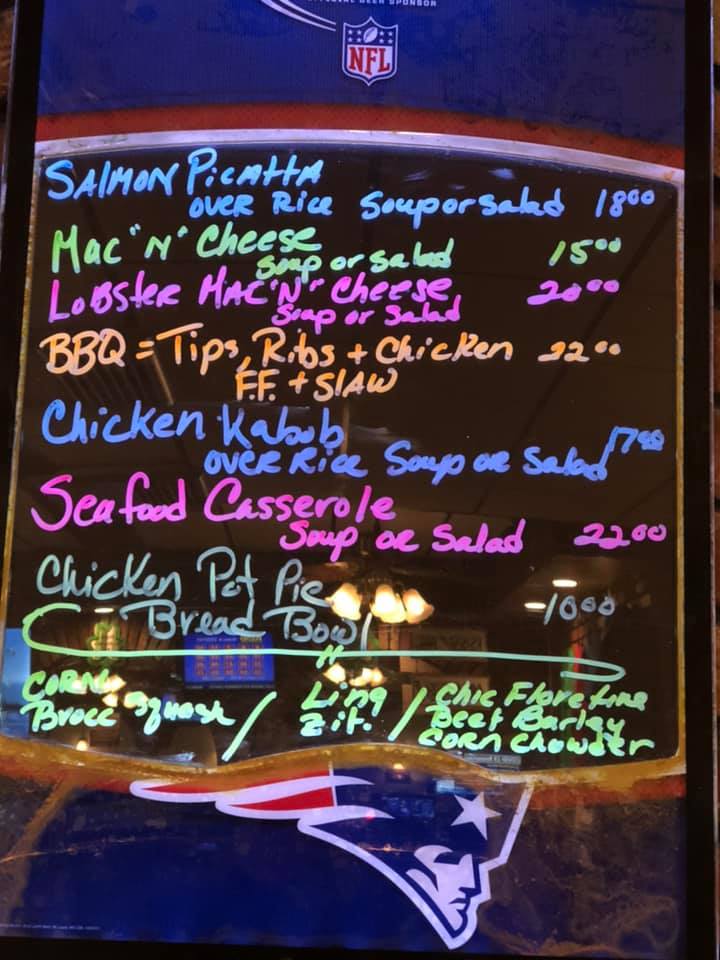 OFFICIAL BEER SPONSOR
NFL
SALMON PICATTA
OVER RICE Soup or salad 18⁰⁰
Mac "N" Cheese
Soup or salad 15⁰⁰
LOBSTER MAC "N" Cheese 20⁰⁰
Soup or Salad
BBQ = Tips, Ribs + Chicken 22⁰⁰
F.F. + SLAW
Chicken Kabob 17⁰⁰
OVER Rice Soup or Salad
Seafood Casserole
Soup or Salad 22.00
Chicken Pot Pie
Bread Bowl 10.00
CORN
Brocc Squash / Ling Zit. / Chic Floretine
Beef Barley
Corn chowder